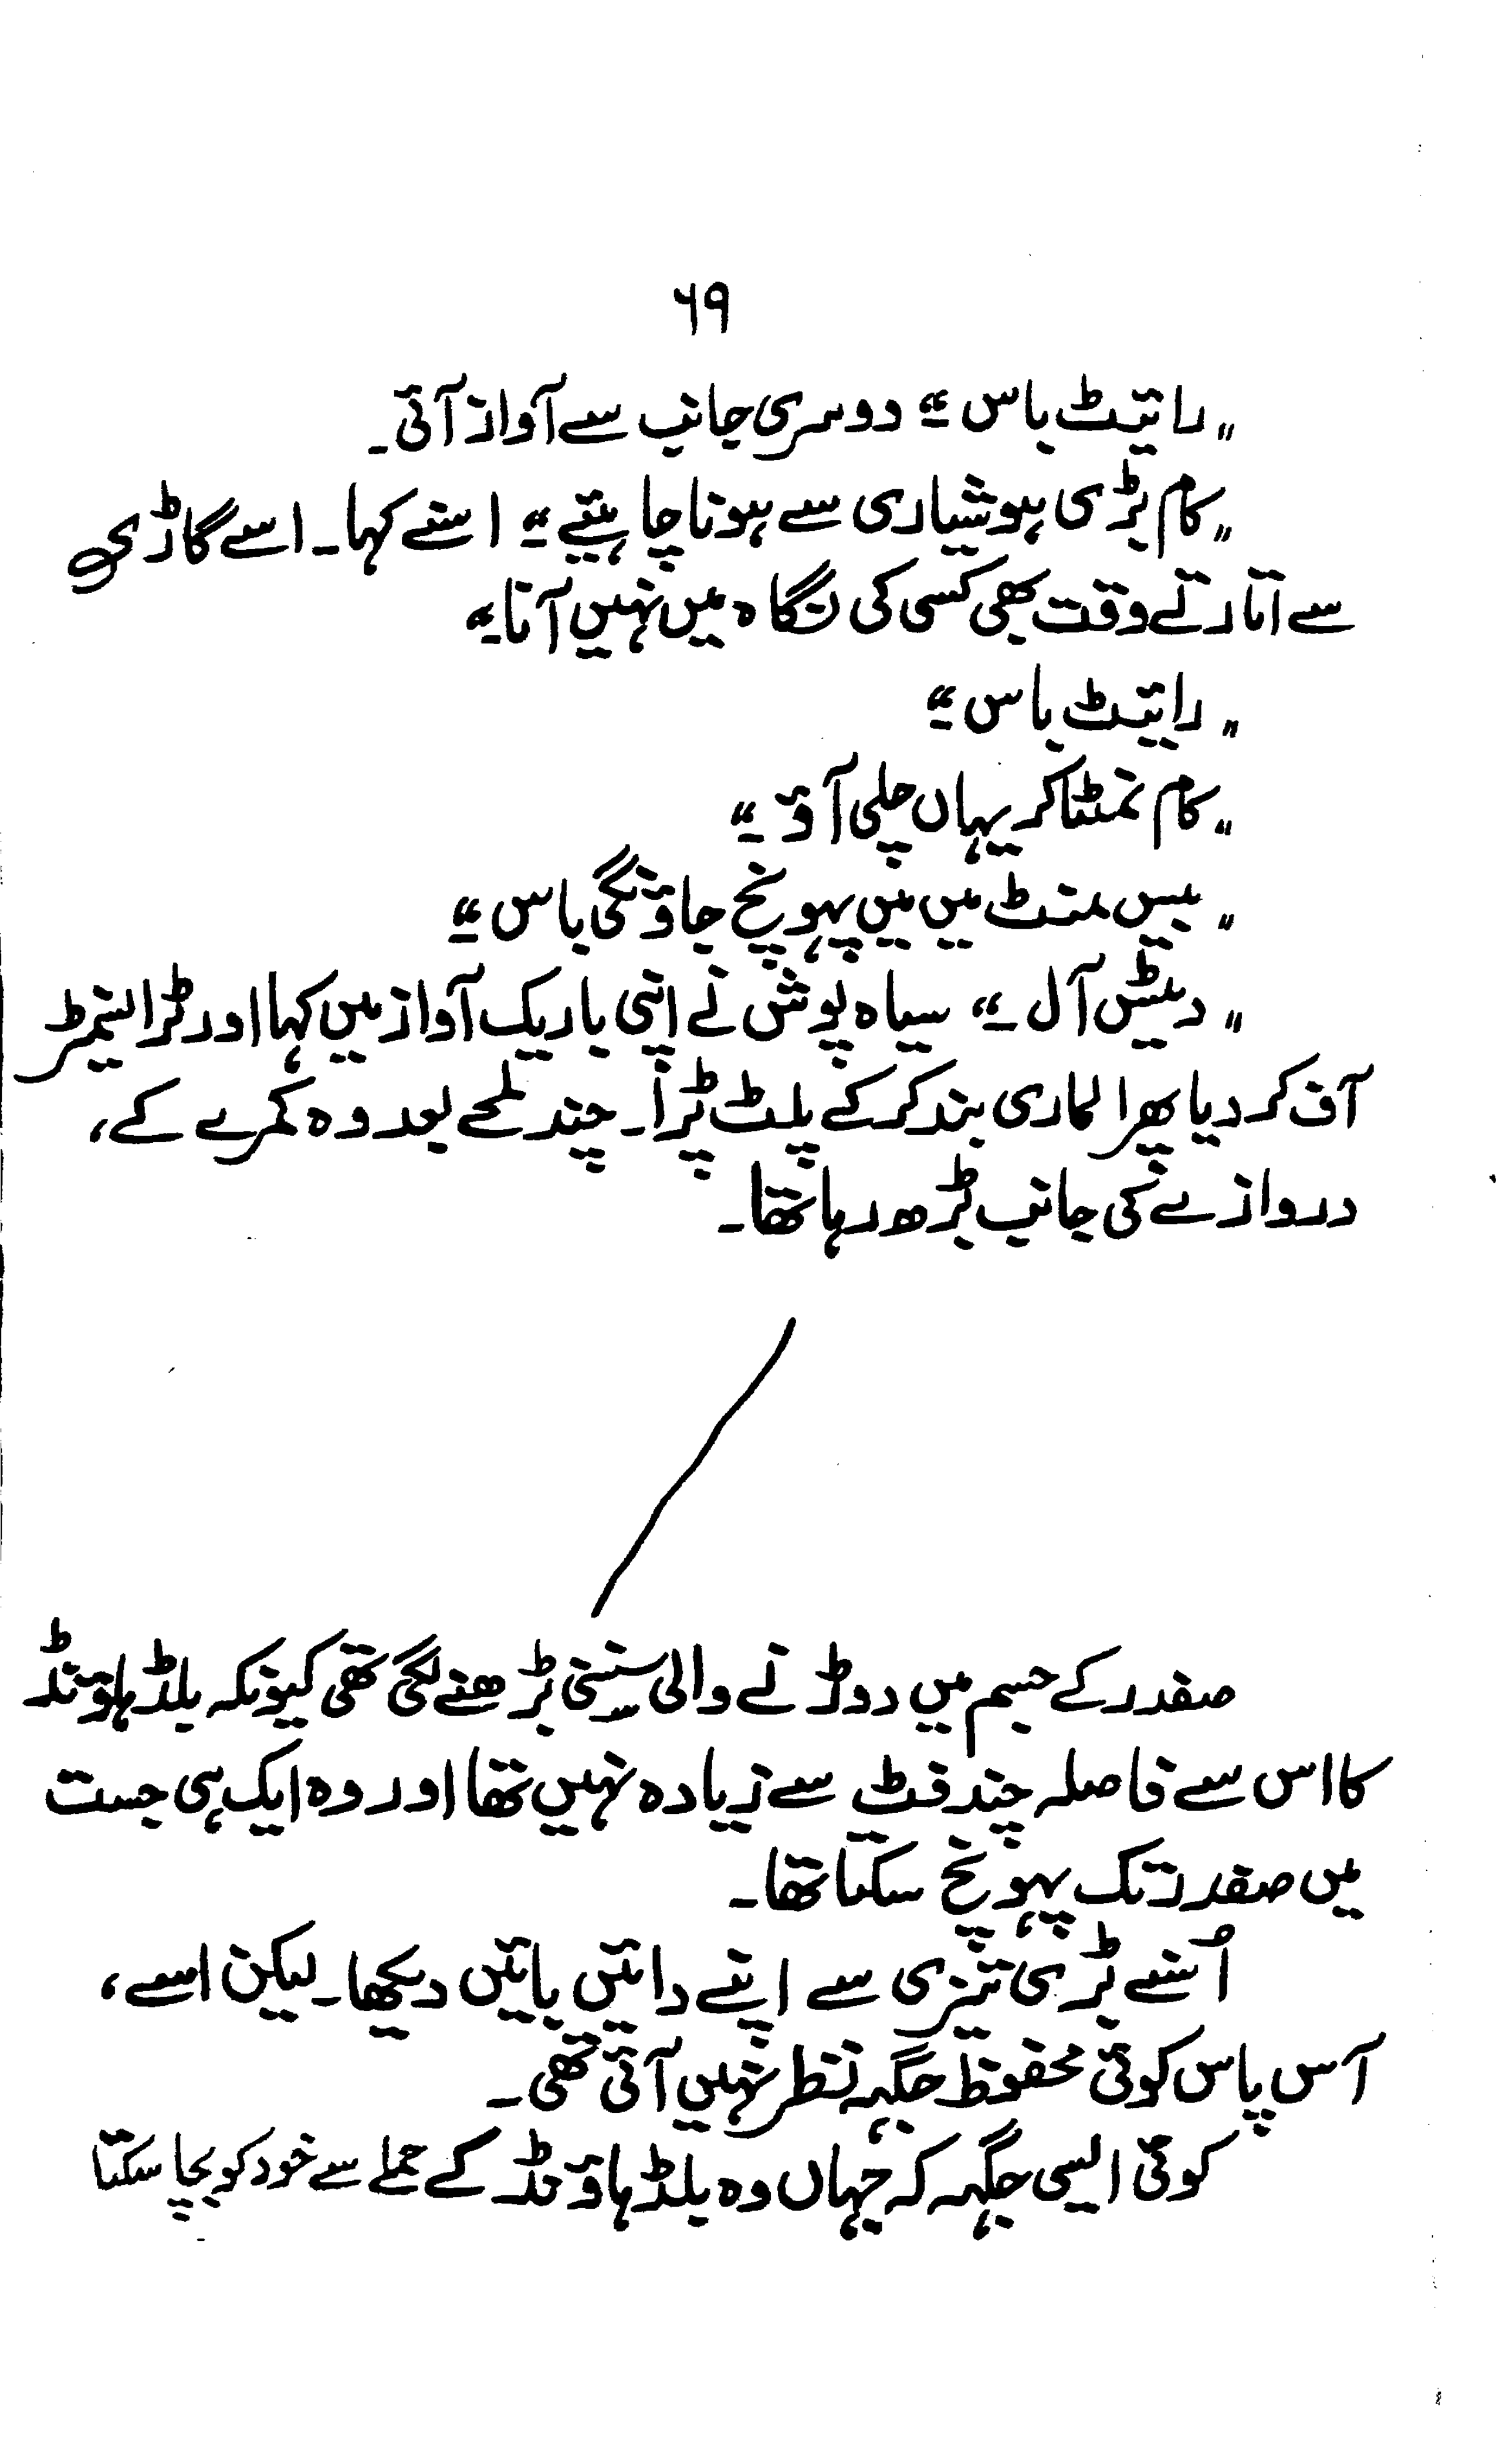 ۶۹
"رائیٹ باس ۔" دوسری جانب سے آواز آئی۔
"کام بڑی ہوشیاری سے ہونا چاہیئے ۔" اسنے کہا۔ اسے گاڑی
سے اتارتے وقت بھی کسی کی نگاہ میں نہیں آنا ۔"
"رائیٹ باس ۔"
"کام نمٹا کر یہاں چلی آؤ ۔"
"بیس منٹ میں میں پہونچ جاؤنگی باس ۔"
"دیٹس آل ۔" سیاہ پوش نے اپنی باریک آواز میں کہا اور ٹرانسمیٹر
آف کر دیا پھر الماری بند کرکے پلٹ پڑا۔ چند لمحے بعد وہ کمرے کے،
دروازے کی جانب بڑھ رہا تھا۔
صفدر کے جسم میں دوڑنے والی سنسنی بڑھنے لگی تھی کیونکہ بلڈ ہاؤنڈ
کا اس سے فاصلہ چند فٹ سے زیادہ نہیں تھا اور وہ ایک ہی جست
میں صفدر تک پہونچ سکتا تھا۔
اُسنے بڑی تیزی سے اپنے دائیں بائیں دیکھا۔ لیکن اسے،
آس پاس کوئی محفوظ جگہ نظر نہیں آئی تھی۔
کوئی ایسی جگہ کہ جہاں وہ بلڈ ہاؤنڈ کے حملے سے خود کو بچا سکتا